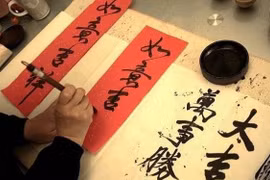 大吉
萬事勝
如意吉
如意吉祥